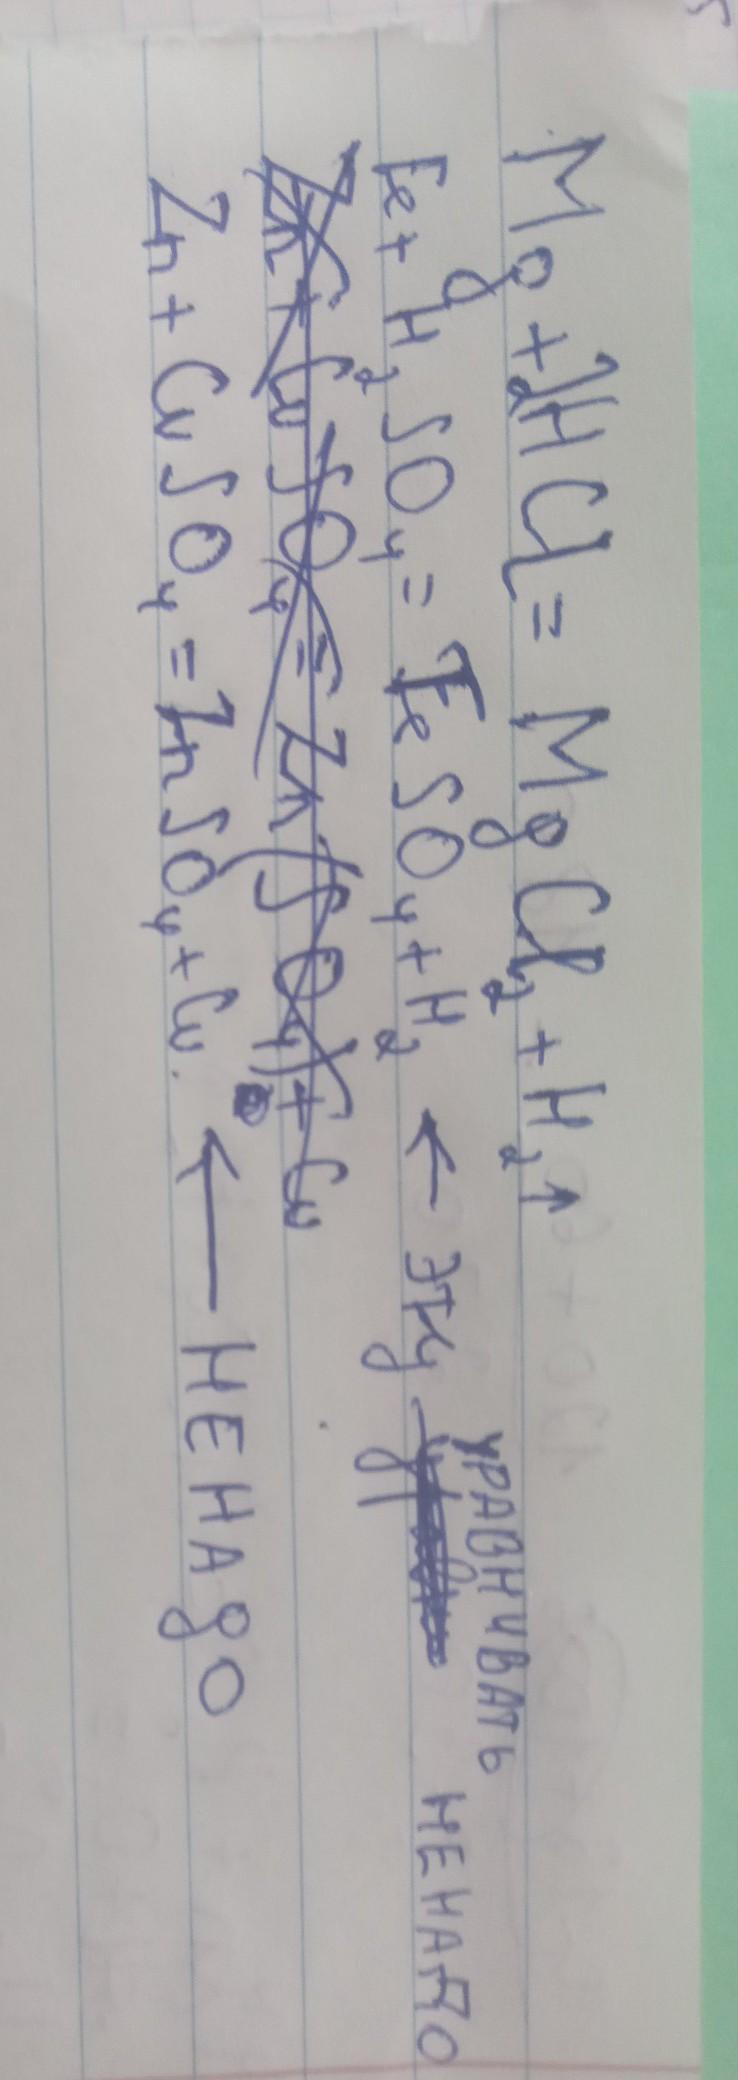 Mg + 2HCl = MgCl₂ + H₂↑
Fe + H₂SO₄ = FeSO₄ + H₂ ← эту уравнивать не надо
Zn + CuSO₄ = ZnSO₄ + Cu
Zn + CuSO₄ = ZnSO₄ + Cu. ← не надо